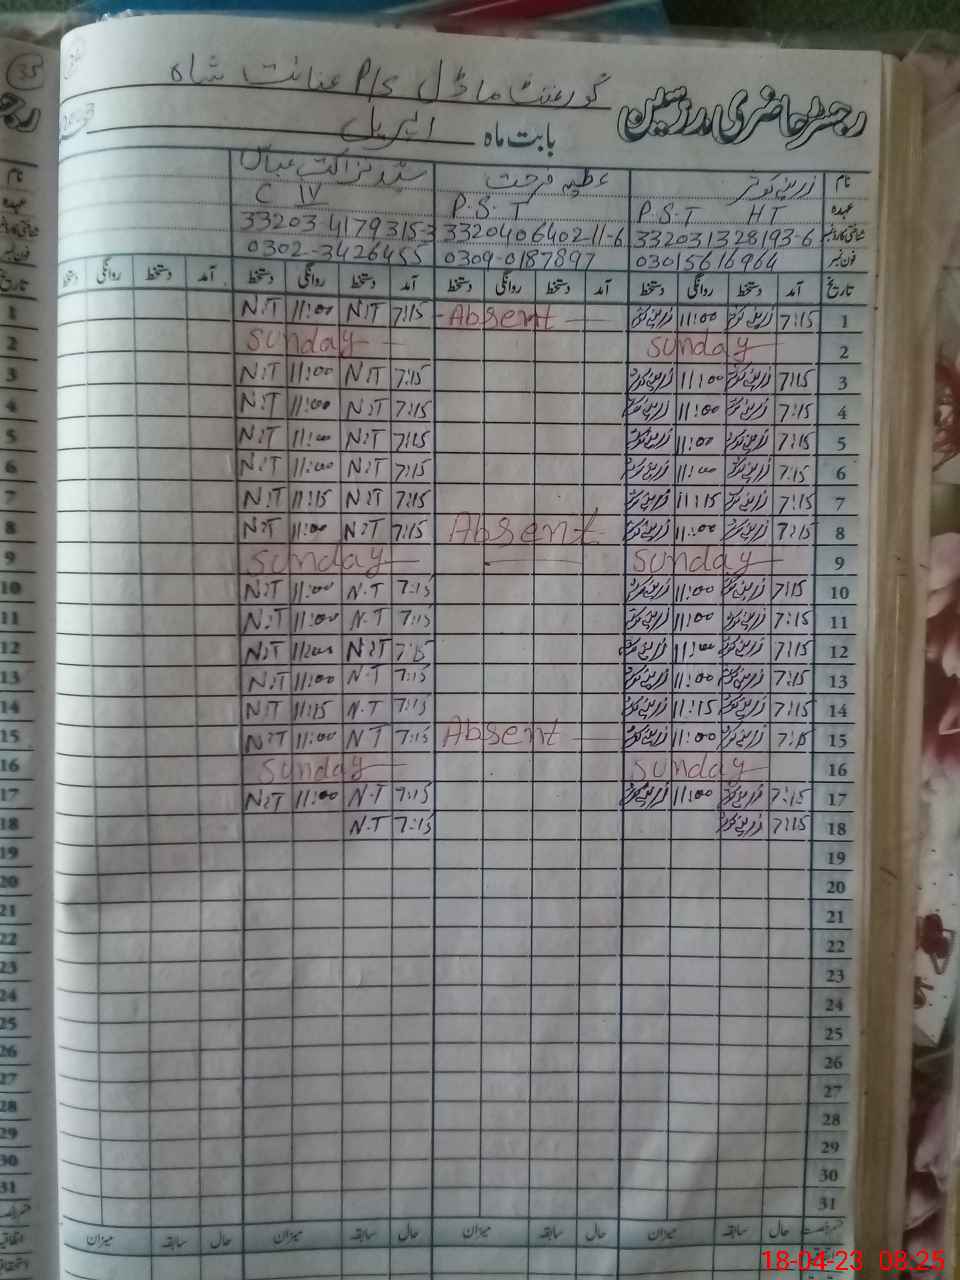 رجسٹر حاضری مدرسین
گورمنٹ ماڈل P/S عنائت شاہ
بابت ماہ اپریل 2023
نام زرینہ کوثر عطیہ فرحت سید نزاکت عباس
عہدہ P.S.T HT P.S.T C IV
شناختی کارڈ نمبر 3320313 28193-6 33204064021 1-6 33203 4179315-3
فون نمبر 03015616964 0309-0187897 0302-3426455
تاریخ آمد دستخط روانگی دستخط آمد دستخط روانگی دستخط آمد دستخط روانگی دستخط آمد دستخط روانگی دستخط
1 7:15 زرینہ کوثر 11:00 زرینہ کوثر Absent 7:15 N:T 11:00 N:T
2 Sunday Sunday
3 7:15 زرینہ کوثر 11:00 زرینہ کوثر 7:15 N:T 11:00 N:T
4 7:15 زرینہ کوثر 11:00 زرینہ کوثر 7:15 N:T 11:00 N:T
5 7:15 زرینہ کوثر 11:00 زرینہ کوثر 7:15 N:T 11:00 N:T
6 7:15 زرینہ کوثر 11:00 زرینہ کوثر 7:15 N:T 11:00 N:T
7 7:15 زرینہ کوثر 11:15 زرینہ کوثر 7:15 N:T 11:15 N:T
8 7:15 زرینہ کوثر 11:00 زرینہ کوثر Absent 7:15 N:T 11:00 N:T
9 Sunday Sunday
10 7:15 زرینہ کوثر 11:00 زرینہ کوثر 7:15 N.T 11:00 N:T
11 7:15 زرینہ کوثر 11:00 زرینہ کوثر 7:15 N.T 11:00 N:T
12 7:15 زرینہ کوثر 11:00 زرینہ کوثر 7:15 N:T 11:00 N:T
13 7:15 زرینہ کوثر 11:00 زرینہ کوثر 7:15 N.T 11:00 N:T
14 7:15 زرینہ کوثر 11:15 زرینہ کوثر 7:15 N.T 11:15 N:T
15 7:15 زرینہ کوثر 11:00 زرینہ کوثر Absent 7:15 N T 11:00 N:T
16 Sunday Sunday
17 7:15 زرینہ کوثر 11:00 زرینہ کوثر 7:15 N.T 11:00 N:T
18 7:15 زرینہ کوثر 7:15 N.T
19
20
21
22
23
24
25
26
27
28
29
30
31
حال سابقہ میزان حال سابقہ میزان حال سابقہ میزان حال سابقہ میزان
18-04-23 08:25